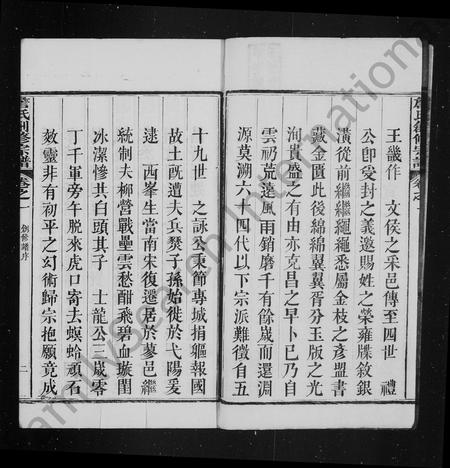 王畿作 文侯之采邑傳至四世 禮
公卽受封之義遂賜姓之榮雍牒敘銀
潢從前繼繼繩繩悉屬金枝之彥盟書
藏金匱此後綿綿翼翼胥分玉版之光
洵貴盛之有由亦克昌之早卜已乃自
雲礽荒遠風雨銷磨千有餘歲而還淵
源莫溯六十四代以下宗派難徵自五
十九世 之詠公秉節專城捐軀報國
故土既遭夫兵燹子孫始徙於弋陽爰
逮 西峯生當南宋復遷居於蓼邑繼
統制夫柳營戰壘雲愁酣飛碧血璇閨
冰潔慘共白頭其子 士龍公八歲零
丁千軍旁午脫來虎口寄去螟蛉頑石
效靈非有初平之幻術歸宗抱願竟成
詹氏創修宗譜 卷之一 創修譜序 二
FamilySearch International